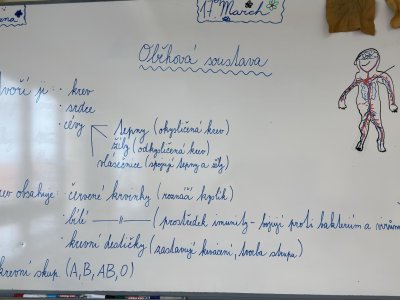 17. March
Oběhová soustava
tvoří ji: · krev
· srdce
· cévy
tepny (okysličená krev)
žíly (odkysličená krev)
vlásečnice (spojují tepny a žíly)
obsahuje: · červené krvinky (roznáší kyslík)
· bílé —〃— (prostředek imunity - bojují proti bakteriím a virům
· krevní destičky (zastavují krvácení, tvorba strupu)
krevní skup. (A, B, AB, 0)